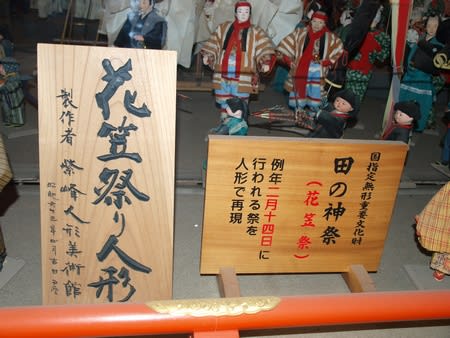 国指定無形重要文化財
田の神祭
(花笠祭)
例年二月十四日に
行われる祭を
人形で再現
花笠祭り人形
製作者 紫峰人形美術館